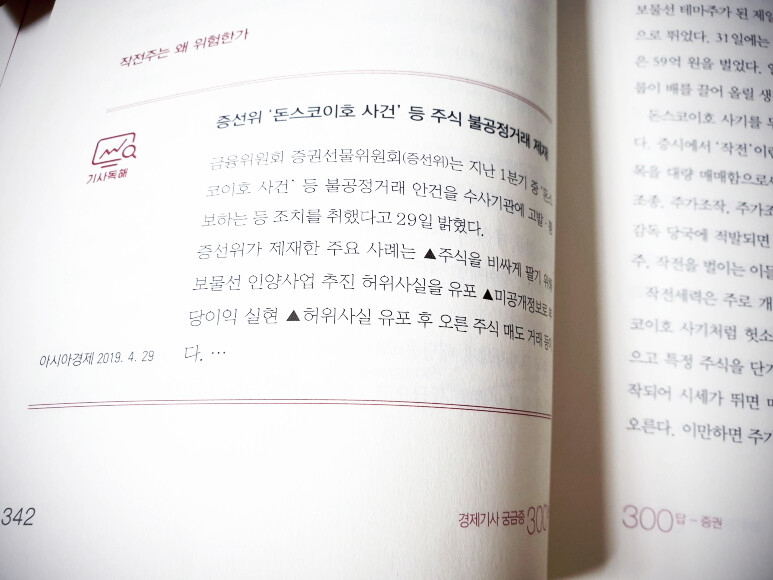 작전주는 왜 위험한가
증선위 '돈스코이호 사건' 등 주식 불공정거래 제재
기사독해
금융위원회 증권선물위원회(증선위)는 지난 1분기 중 '돈스
코이호 사건' 등 불공정거래 안건을 수사기관에 고발·통
보하는 등 조치를 취했다고 29일 밝혔다.
증선위가 제재한 주요 사례는 ▲주식을 비싸게 팔기 위해
보물선 인양사업 추진 허위사실을 유포 ▲미공개정보로 부
당이익 실현 ▲허위사실 유포 후 오른 주식 매도 거래 등이
다. …
아시아경제 2019. 4. 29
342
경제기사 궁금증 300
보물선 테마주가 된 제일
으로 뛰었다. 31일에는
은 59억 원을 벌었다.
룹이 배를 끌어 올릴 생
돈스코이호 사기를 두
다. 증시에서 '작전'이란
목을 대량 매매함으로써
조종, 주가조작, 주가조
감독 당국에 적발되면
주, 작전을 벌이는 이들
작전세력은 주로 개
코이호 사기처럼 헛소
으고 특정 주식을 단기
작되어 시세가 뛰면 매
오른다. 이만하면 주가
300답 - 증권